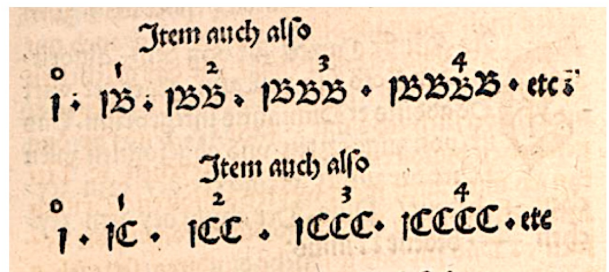 Item auch also
0 1 2 3 4
1 · 1B · 1BB · 1BBB · 1BBBB · etc
Item auch also
0 1 2 3 4
1 · 1C · 1CC · 1CCC · 1CCCC · etc